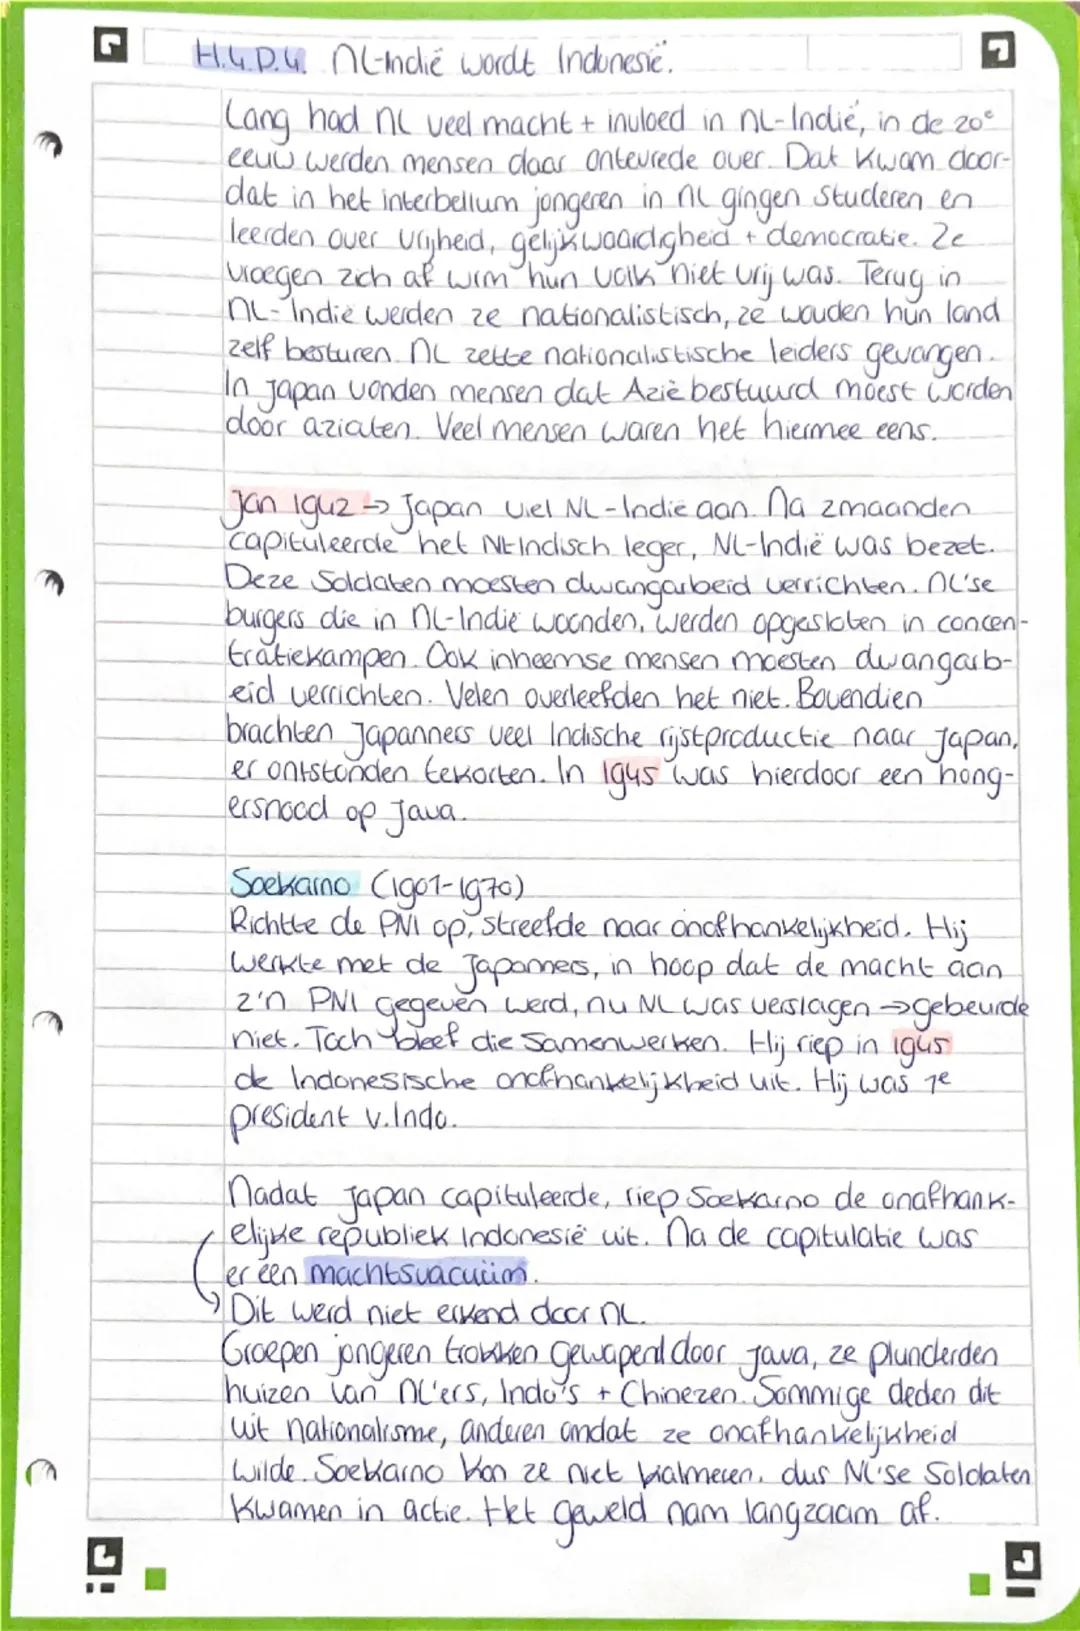 H.4.P.4. NL-Indië wordt Indonesië.
Lang had NL veel macht + invloed in NL-Indië, in de 20e
eeuw werden mensen daar ontevrede over. Dat kwam door-
dat in het interbellum jongeren in NL gingen studeren en
leerden over vrijheid, gelijkwaardigheid + democratie. Ze
vroegen zich af wrm hun volk niet vrij was. Terug in
NL-Indië werden ze nationalistisch, ze wouden hun land
zelf besturen. NL zette nationalistische leiders gevangen.
In Japan vonden mensen dat Azië bestuurd moest worden
door aziaten. Veel mensen waren het hiermee eens.
Jan 1942 → Japan viel NL-Indië aan. Na 2 maanden
capituleerde het NL-Indisch leger, NL-Indië was bezet.
Deze soldaten moesten dwangarbeid verrichten. NL'se
burgers die in NL-Indië woonden, werden opgesloten in concen-
tratiekampen. Ook inheemse mensen moesten dwangarb-
eid verrichten. Velen overleefden het niet. Bovendien
brachten Japanners veel Indische rijstproductie naar Japan,
er ontstonden tekorten. In 1945 was hierdoor een hong-
ersnood op Java.
Soekarno (1901-1970)
Richtte de PNI op, streefde naar onafhankelijkheid. Hij
werkte met de Japanners, in hoop dat de macht aan
z'n PNI gegeven werd, nu NL was verslagen → gebeurde
niet. Toch bleef die samenwerken. Hij riep in 1945
de Indonesische onafhankelijkheid uit. Hij was 1e
president v. Indo.
Nadat Japan capituleerde, riep Soekarno de onafhank-
elijke republiek Indonesië uit. Na de capitulatie was
er een machtsvacuüm.
Dit werd niet erkend door NL.
Groepen jongeren trokken gewapend door Java, ze plunderden
huizen van NL'ers, Indo's + Chinezen. Sommige deden dit
uit nationalisme, anderen omdat ze onafhankelijkheid
wilde. Soekarno kon ze niet kalmeren, dus NL'se soldaten
kwamen in actie. Het geweld nam langzaam af.